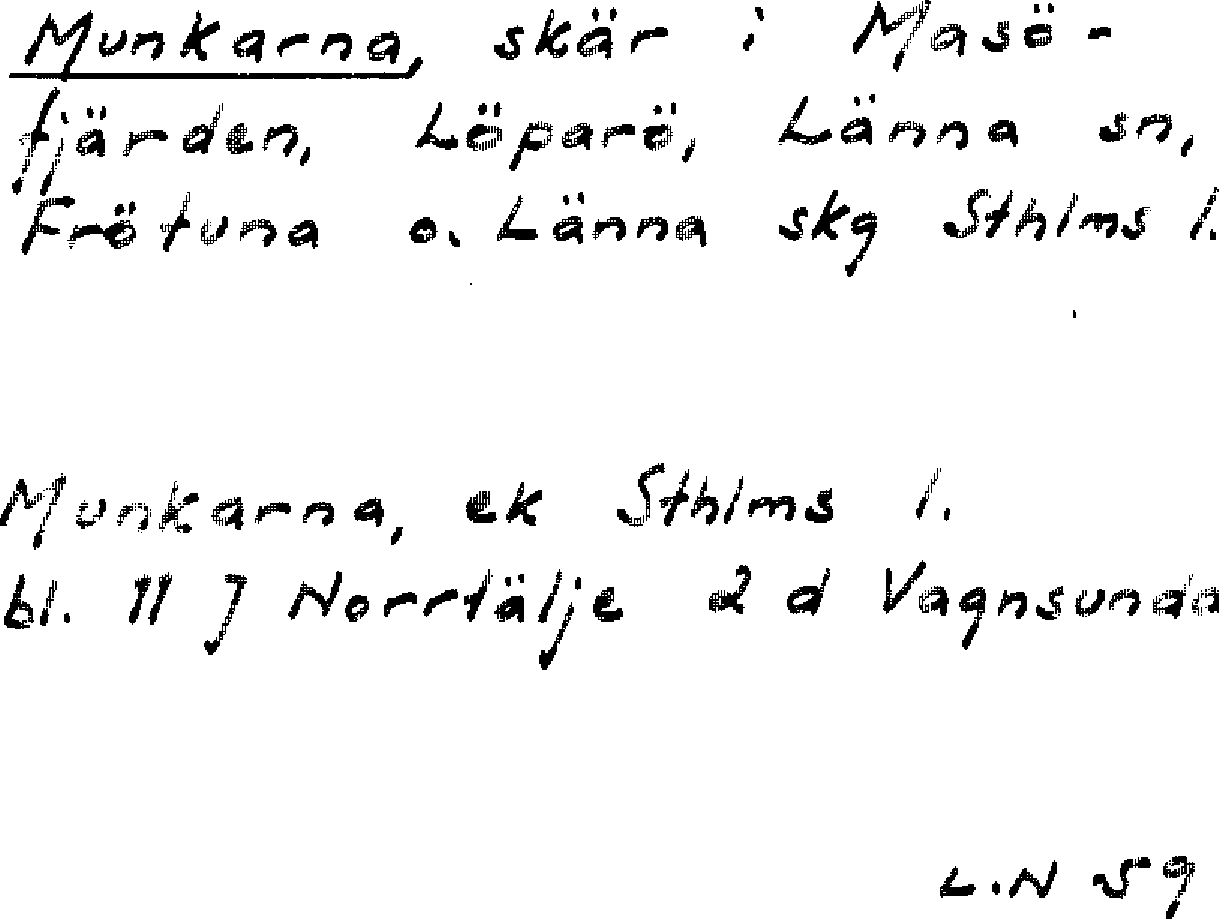 Munkarna, skär i Masö-
fjärden, Löparö, Länna sn,
Frötuna o. Länna skg Sthlms l.
Munkarna, ek Sthlms l.
bl. 11 J Norrtälje 2 d Vagnsunda
L.N 59